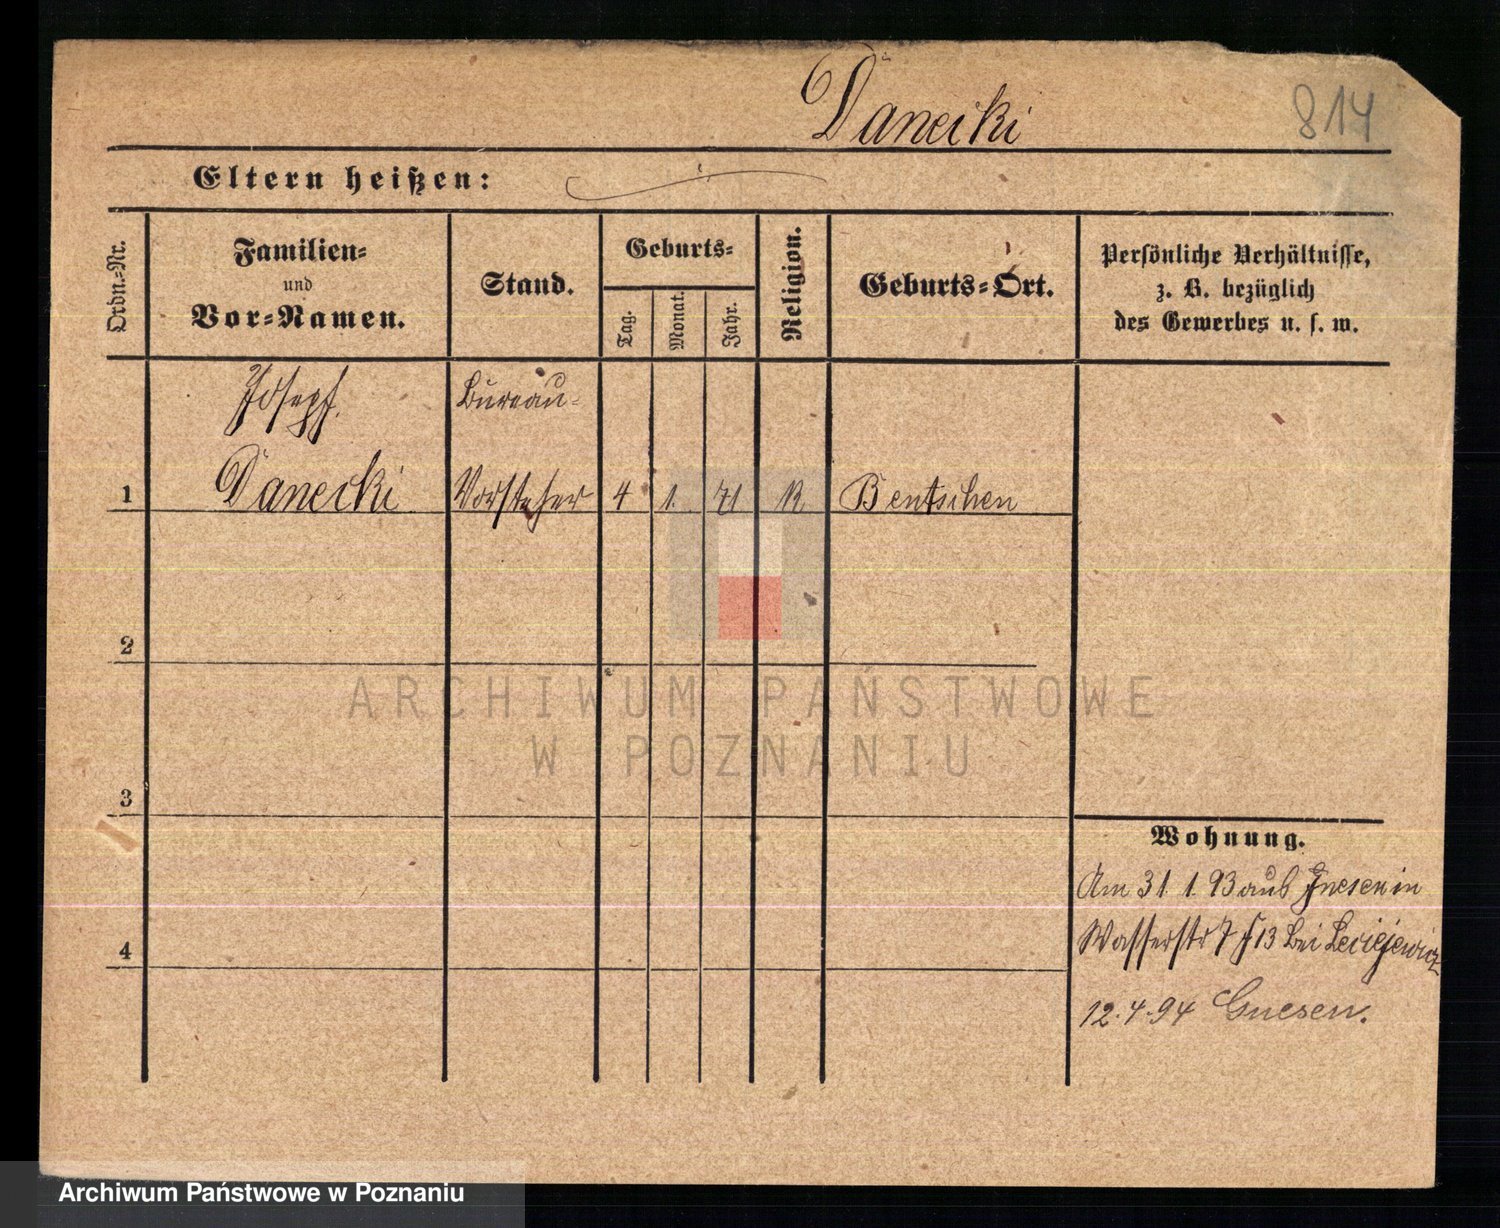 Danecki
814
Eltern heißen:
Ordn.-Nr.
Familien-
und
Vor-Namen.
Stand.
Geburts-
Tag.
Monat.
Jahr.
Religion.
Geburts-Ort.
Persönliche Verhältnisse,
z. B. bezüglich
des Gewerbes u. s. w.
Josepf
Bureau-
1 Danecki Vorsteher 4 1. 71 R Bentschen
2
ARCHIWUM PAŃSTWOWE
W POZNANIU
3
Wohnung.
Am 31 1. 93 aus Gnesen in
Wasserstr 7 13 bei
4
12.4.94 Gnesen.
Archiwum Państwowe w Poznaniu